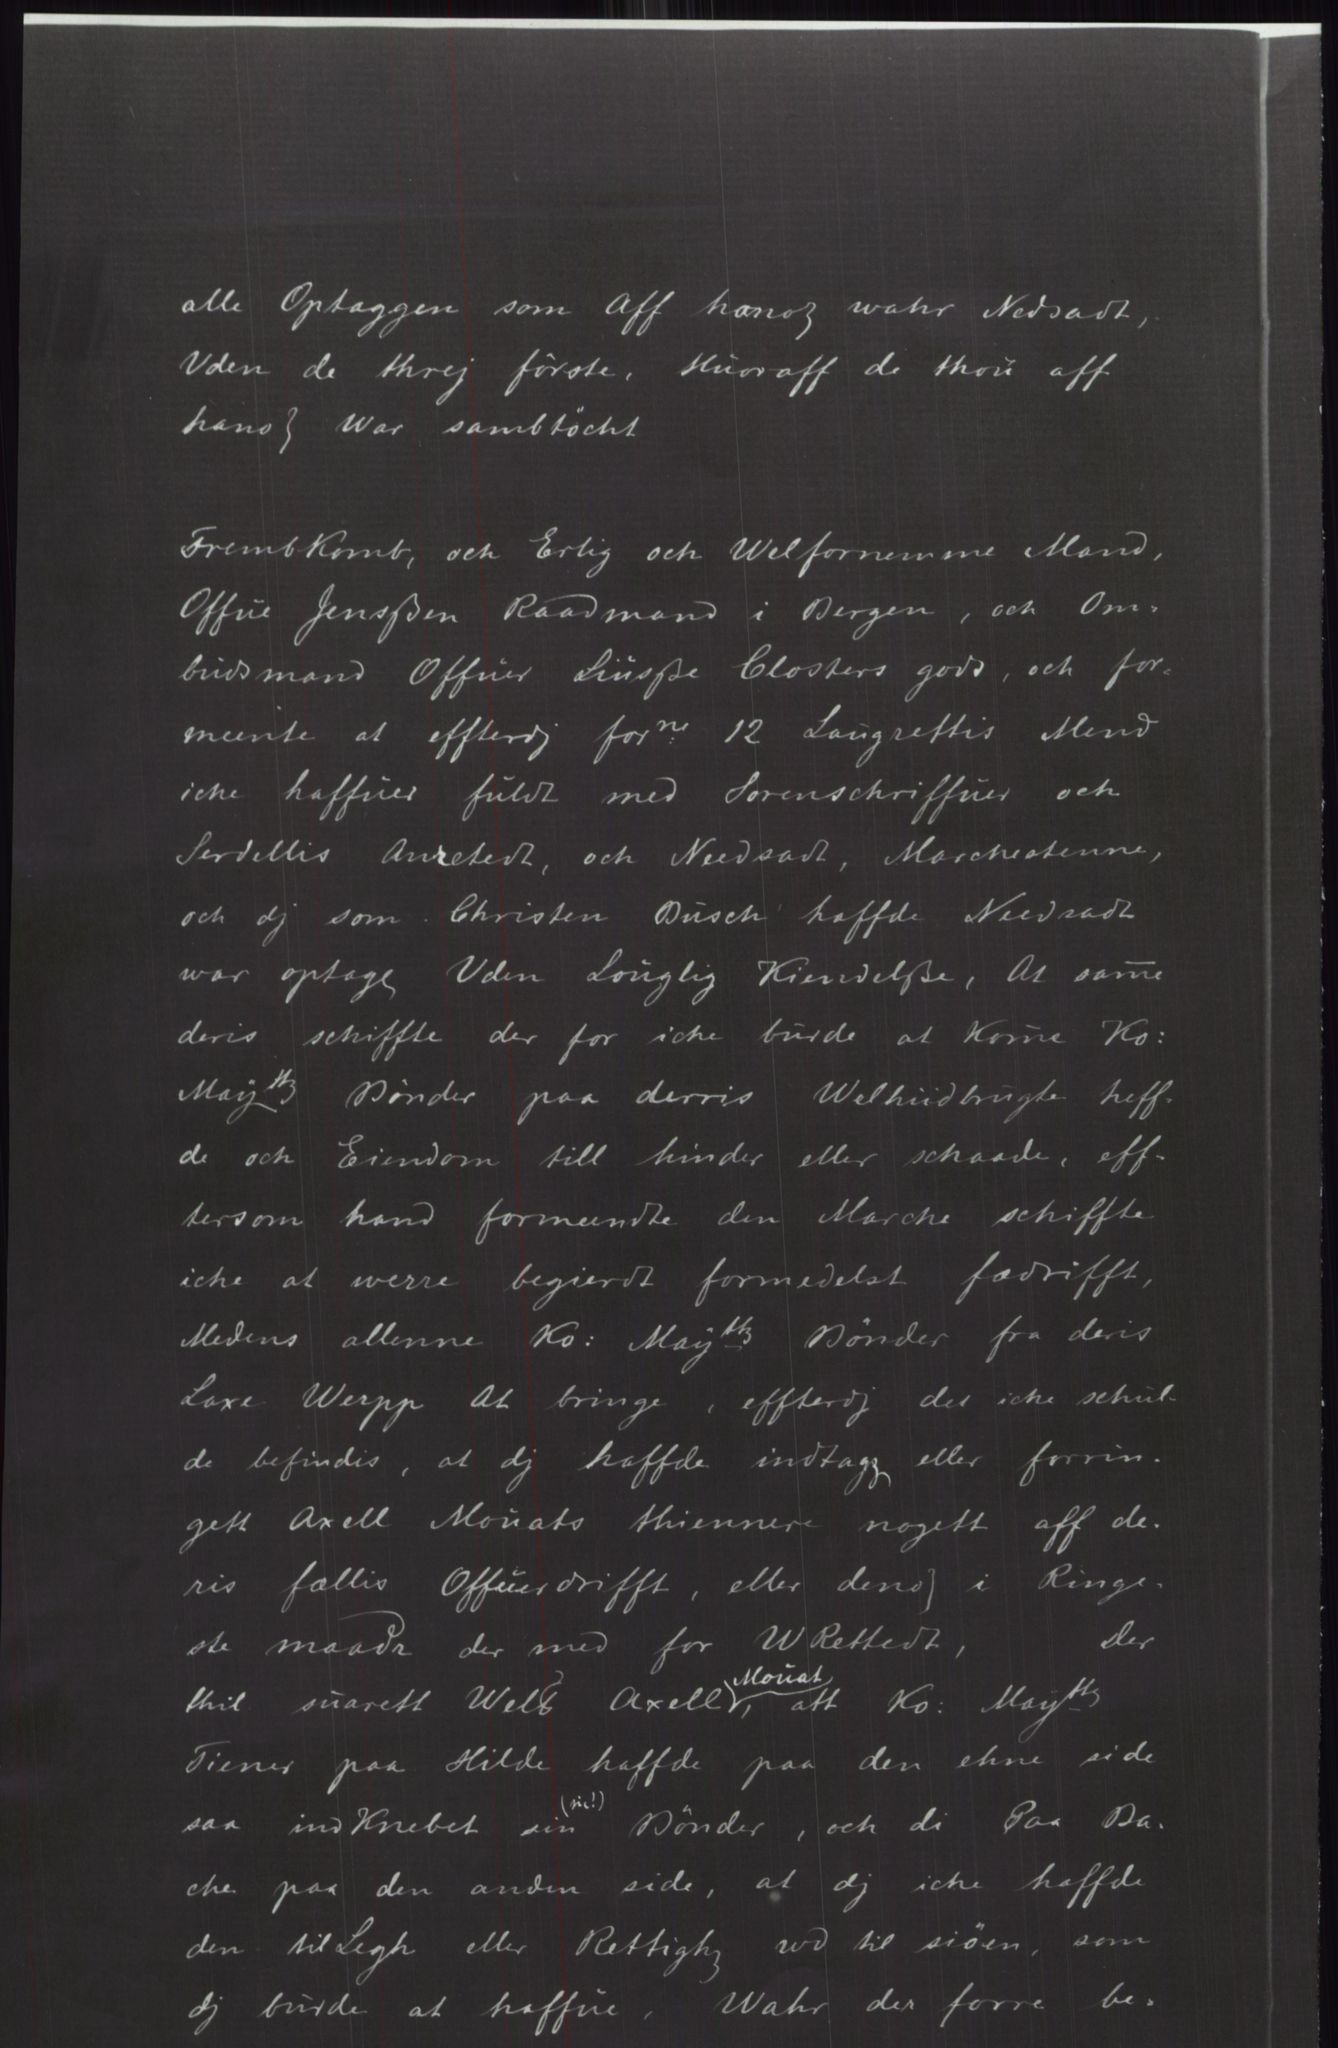 alle Optaggen som Aff hanoȝ wahr Nedsadt,
Vden de threj förste, Huoraff de thoŭ aff
hanoȝ War sambtöcht
FrembKomb, och Erlig och Welfornemme Mand,
Offŭe Jensßen Raadmand i Bergen, och Om-
bŭdsmand Offŭer Lŭŭsße Closters gods, och for-
meente at effterdj forne 12 Laŭgrettis Mend
iche haffŭer fŭldt med Sorenschriffŭer och
Serdellis Anretedt, och Needsadt, Marchestenne,
och dj som Christen Bŭsch haffde Needsadt
war optagȝ Vden Loŭglig Kiendelße, At sam̄e
deris schiffte der for iche bŭrde at Kom̄e Ko:
Maÿttȝ Bönder paa derris Welhŭdbrŭgte heff-
de och Eiendom till hinder eller schaade, eff-
tersom hand formeendte den Marche schiffte
iche at werre begierdt formedelst fædrifft,
Medens allenne Ko: Maÿttȝ Bönder fra deris
Laxe Werpp At bringe, effterdj det iche schŭl-
de befindis, at dj haffde indtagȝ eller forrin-
gett Axell Moŭats thiennere nogett aff de-
ris fællis Offŭerdrifft, eller denoȝ i Ringe-
ste maade der med for WRettedt, Der
thil sŭarett Welb Axell Moŭat, att Ko: Maÿttȝ
Tiener paa Hilde haffde paa den ehne side
saa indKnebet sin (sic!) Bönder, och di Paa Ba-
che paa den anden side, at dj iche haffde
den tilLegh eller Rettighȝ wd til siöen, som
dj bŭrde at haffŭe, Wahr der forre be-